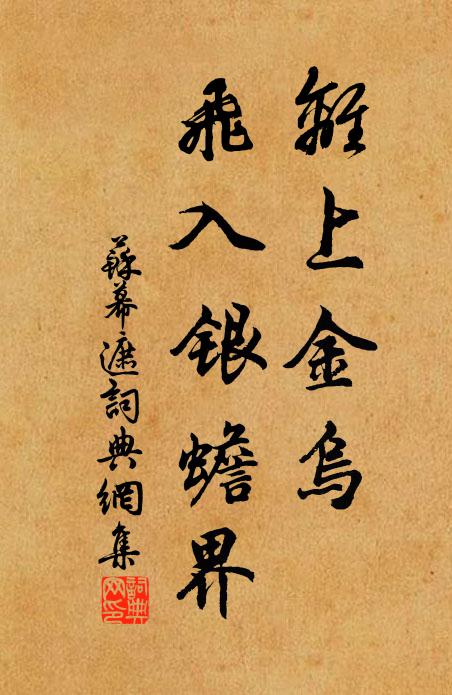 離上金烏
飛入銀蟾界
蘇幕遮詞典網集
詞典网印